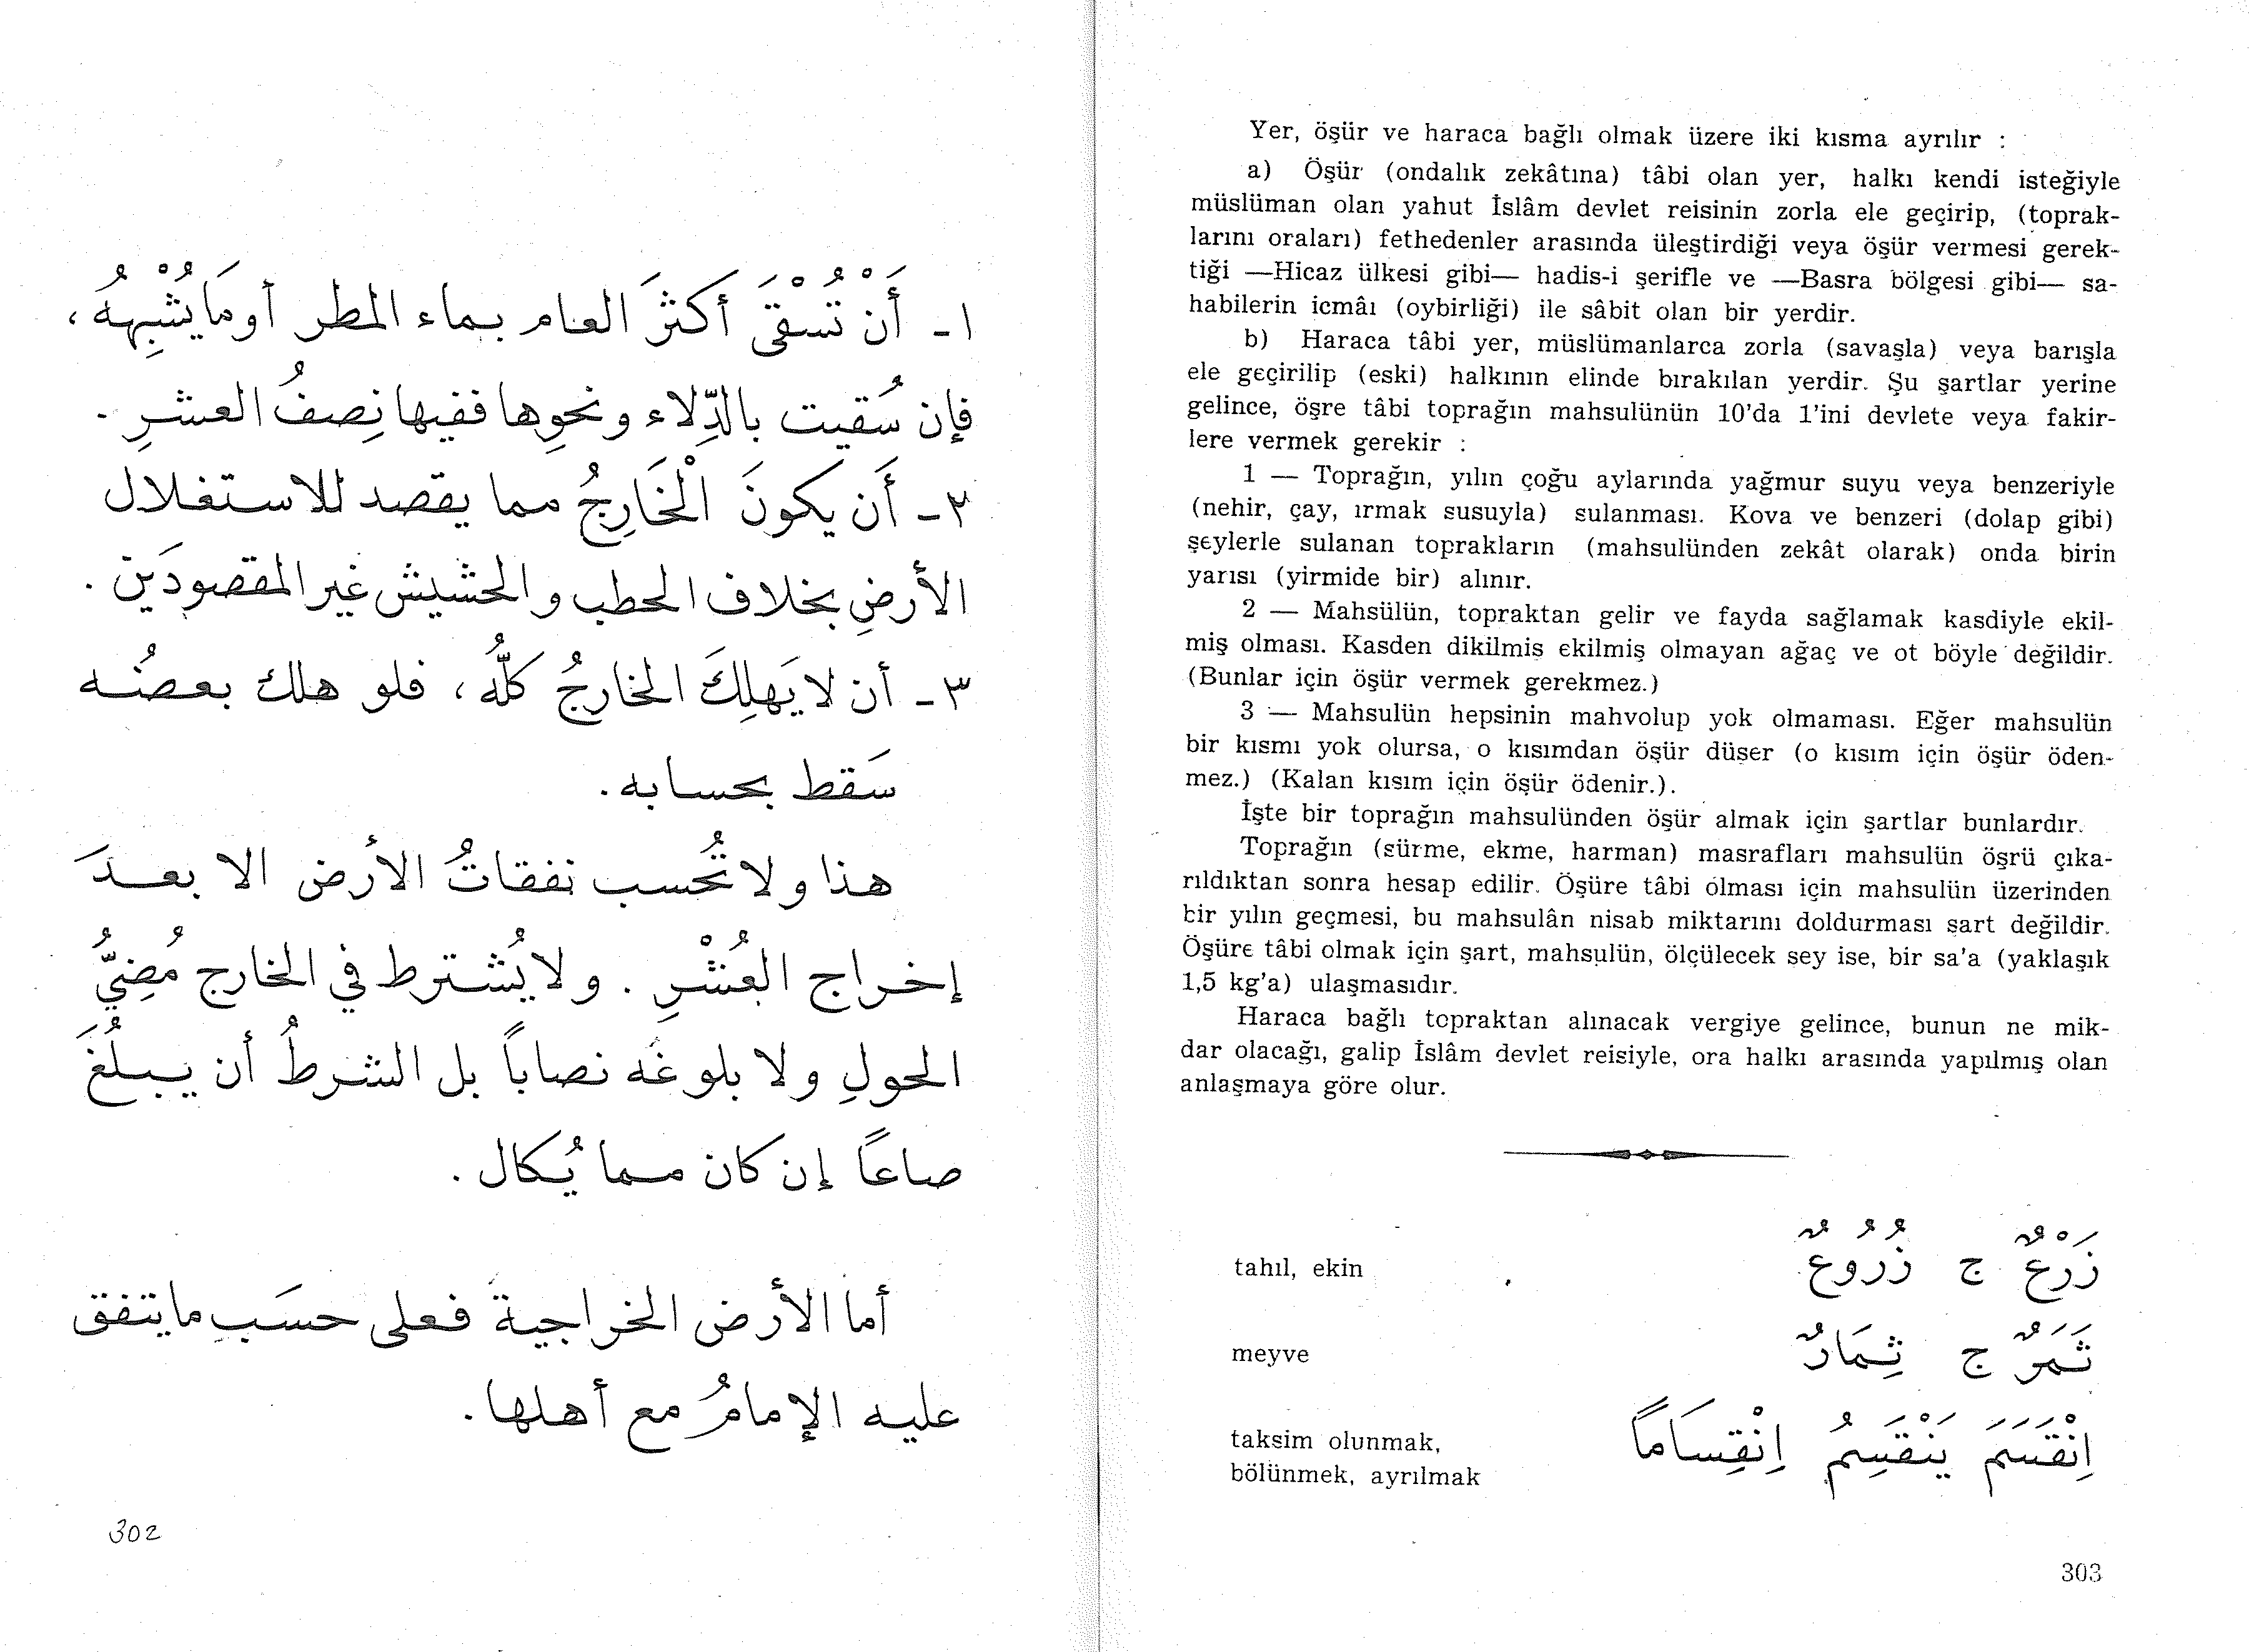 ١ـ أَنْ تُسْقَى أكثرَ العام بماء المطر أو مَا يُشْبِهُهُ،
فإن سُقيت بالدِّلاء ونحوِها ففيها نِصفُ العشرِ.
٢ـ أَن يكونَ الْخَارِجُ مما يقصد للاستغلال
الأرضِ بخلاف الحطب والحشيش غير المقصودَين.
٣ـ أن لا يَهلِكَ الخارجُ كلُّه، فلو هلك بعضُه
سَقط بحسابه.
هذا ولا تُحسب نفقاتُ الأرض الا بعدَ
إخراج العُشْرِ. ولا يُشترط في الخارج مُضِيُّ
الحولِ ولا بلوغه نصاباً بل الشرطُ أن يبلُغَ
صاعاً إن كان مما يُكال.
أما الأرض الخراجية فعلى حسَبِ ما يتفق
عليه الإمامُ مع أهلها.
302
Yer, öşür ve haraca bağlı olmak üzere iki kısma ayrılır :
a) Öşür (ondalık zekâtına) tâbi olan yer, halkı kendi isteğiyle
müslüman olan yahut İslâm devlet reisinin zorla ele geçirip, (toprak-
larını oraları) fethedenler arasında üleştirdiği veya öşür vermesi gerek-
tiği —Hicaz ülkesi gibi— hadis-i şerifle ve —Basra bölgesi gibi— sa-
habilerin icmâı (oybirliği) ile sâbit olan bir yerdir.
b) Haraca tâbi yer, müslümanlarca zorla (savaşla) veya barışla
ele geçirilip (eski) halkının elinde bırakılan yerdir. Şu şartlar yerine
gelince, öşre tâbi toprağın mahsulünün 10'da 1'ini devlete veya fakir-
lere vermek gerekir :
1 — Toprağın, yılın çoğu aylarında yağmur suyu veya benzeriyle
(nehir, çay, ırmak susuyla) sulanması. Kova ve benzeri (dolap gibi)
şeylerle sulanan toprakların (mahsulünden zekât olarak) onda birin
yarısı (yirmide bir) alınır.
2 — Mahsülün, topraktan gelir ve fayda sağlamak kasdiyle ekil-
miş olması. Kasden dikilmiş ekilmiş olmayan ağaç ve ot böyle değildir.
(Bunlar için öşür vermek gerekmez.)
3 — Mahsulün hepsinin mahvolup yok olmaması. Eğer mahsulün
bir kısmı yok olursa, o kısımdan öşür düşer (o kısım için öşür öden-
mez.) (Kalan kısım için öşür ödenir.).
İşte bir toprağın mahsulünden öşür almak için şartlar bunlardır.
Toprağın (sürme, ekme, harman) masrafları mahsulün öşrü çıka-
rıldıktan sonra hesap edilir. Öşüre tâbi olması için mahsulün üzerinden
bir yılın geçmesi, bu mahsulân nisab miktarını doldurması şart değildir.
Öşüre tâbi olmak için şart, mahsulün, ölçülecek şey ise, bir sa'a (yaklaşık
1,5 kg'a) ulaşmasıdır.
Haraca bağlı topraktan alınacak vergiye gelince, bunun ne mik-
dar olacağı, galip İslâm devlet reisiyle, ora halkı arasında yapılmış olan
anlaşmaya göre olur.
tahıl, ekin زَرْعٌ ج زُرُوعٌ
meyve ثَمَرٌ ج ثِمَارٌ
taksim olunmak, اِنْقَسَمَ يَنْقَسِمُ اِنْقِسَاماً
bölünmek, ayrılmak
303